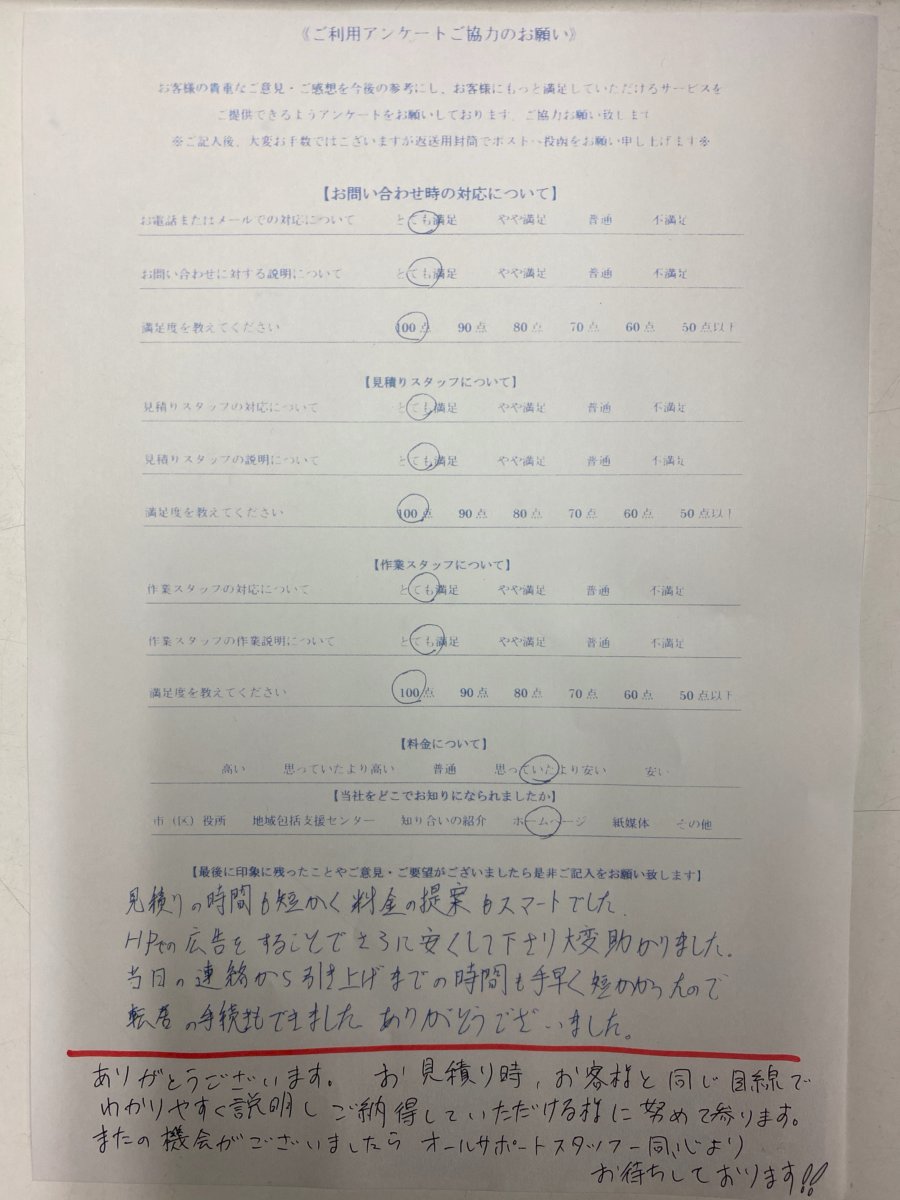 《ご利用アンケートご協力のお願い》
お客様の貴重なご意見・ご感想を今後の参考にし、お客様にもっと満足していただけるサービスを
ご提供できるようアンケートをお願いしております。ご協力お願い致します
※ご記入後、大変お手数ではございますが返送用封筒でポストへ投函をお願い申し上げます※
【お問い合わせ時の対応について】
お電話またはメールでの対応について とても満足 やや満足 普通 不満足
お問い合わせに対する説明について とても満足 やや満足 普通 不満足
満足度を教えてください 100点 90点 80点 70点 60点 50点以下
【見積りスタッフについて】
見積りスタッフの対応について とても満足 やや満足 普通 不満足
見積りスタッフの説明について とても満足 やや満足 普通 不満足
満足度を教えてください 100点 90点 80点 70点 60点 50点以下
【作業スタッフについて】
作業スタッフの対応について とても満足 やや満足 普通 不満足
作業スタッフの作業説明について とても満足 やや満足 普通 不満足
満足度を教えてください 100点 90点 80点 70点 60点 50点以下
【料金について】
高い 思っていたより高い 普通 思っていたより安い 安い
【当社をどこでお知りになられましたか】
市（区）役所 地域包括支援センター 知り合いの紹介 ホームページ 紙媒体 その他
【最後に印象に残ったことやご意見・ご要望がございましたら是非ご記入をお願い致します】
見積りの時間も短かく料金の提案もスマートでした。
HPでの広告をすることでさらに安くして下さり大変助かりました。
当日の連絡から引き上げまでの時間も手早く短かかったので
転居の手続きもできました ありがとうございました。
ありがとうございます。 お見積り時、お客様と同じ目線で
わかりやすく説明しご納得していただける様に努めて参ります。
またの機会がございましたら オールサポートスタッフ一同心より
お待ちしております!!